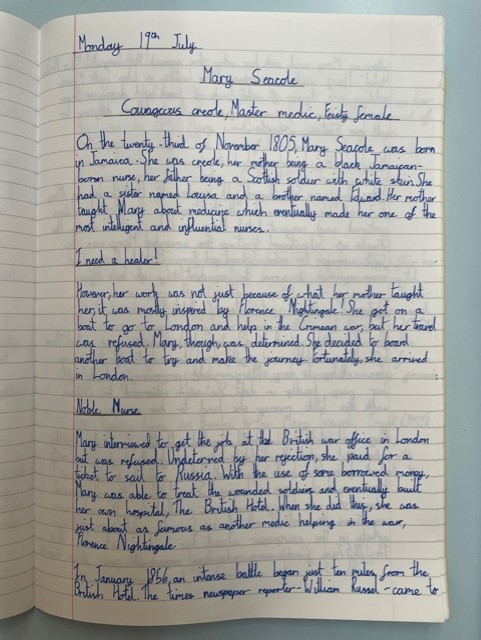 Monday 19th July
Mary Seacole
Courageous creole, Master medic, Feisty female
On the twenty-third of November 1805, Mary Seacole was born
in Jamaica. She was creole, her mother being a black Jamaican-
born nurse, her father being a Scottish soldier with white skin. She
had a sister named Louisa and a brother named Edward. Her mother
taught Mary about medicine which eventually made her one of the
most inteligent and influential nurses.
I need a healer!
However, her work was not just because of what her mother taught
her, it was mostly inspired by Florence Nightingale. She got on a
boat to go to London and help in the Crimean war, but her travel
was refused. Mary, though, was determined. She decided to board
another boat to try and make the journey. Fortunately, she arrived
in London.
Noble Nurse
Mary interviewed to get the job at the British war office in London
but was refused. Undeterred by her rejection, she paid for a
ticket to sail to Russia. With the use of some borrowed money,
Mary was able to treat the wounded soldiers and eventually built
her own hospital, The British Hotel. When she did this, she was
just about as famous as another medic helping in the war,
Florence Nightingale.
In January 1856, an intense battle began just ten miles from the
British Hotel. The times newspaper reporter - William Russel - came to